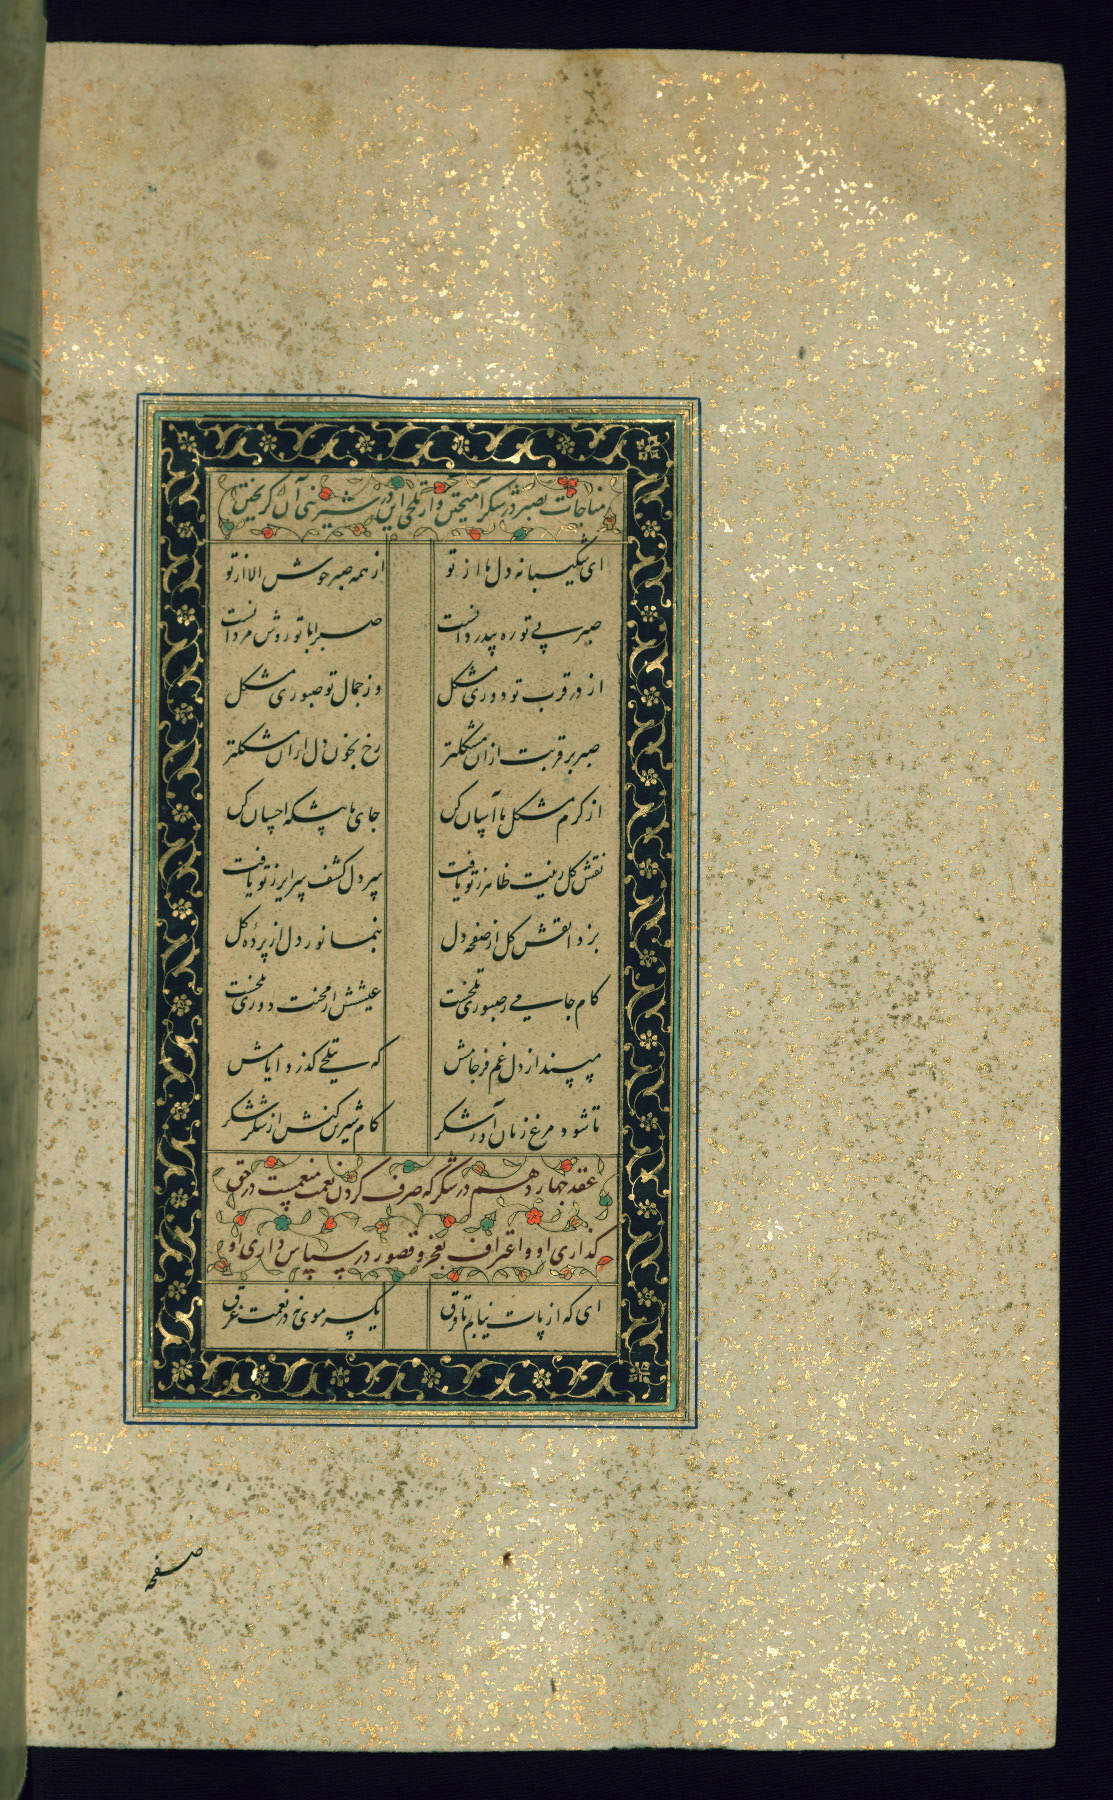 مناجات بصبر در شکر آمیختن و از تلخی این در شیرینی آن گریختن
ای شکیبا نه دل ما از تو از همه صبر خوش الا از تو
صبر بی تو ره بیدردانست صبر با تو روش مردانست
از در قرب تو دوری مشکل وز جمال تو صبوری مشکل
صبر بر قربت ازان مشکلتر رخ بخون دل ازان مشکلتر
از کرم مشکل ما آسان کن جای ما پیشگه احسان کن
نقش گل زینت ظاهر ز تو یافت سر دل کشف سرایر ز تو یافت
بزدا نقش گل از صفحه دل بنما نور دل از پرده گل
کام جامی ز صبوری تلخست عیشش از محنت دوری تلخست
مپسند از دل غم فرجامش که بتلخی گذرد ایامش
تا شود مرغ زبان آور شکر کام شیرین کنش از شکر شکر
عقد چهاردهم در شکر که صرف کردن نعمت منعمست در حق
گذاری او و اعتراف بعجز و قصور در سپاس داری او
ای که از پات بیابم تا فرق یک سر موی نه در نعمت غرق
صفحه